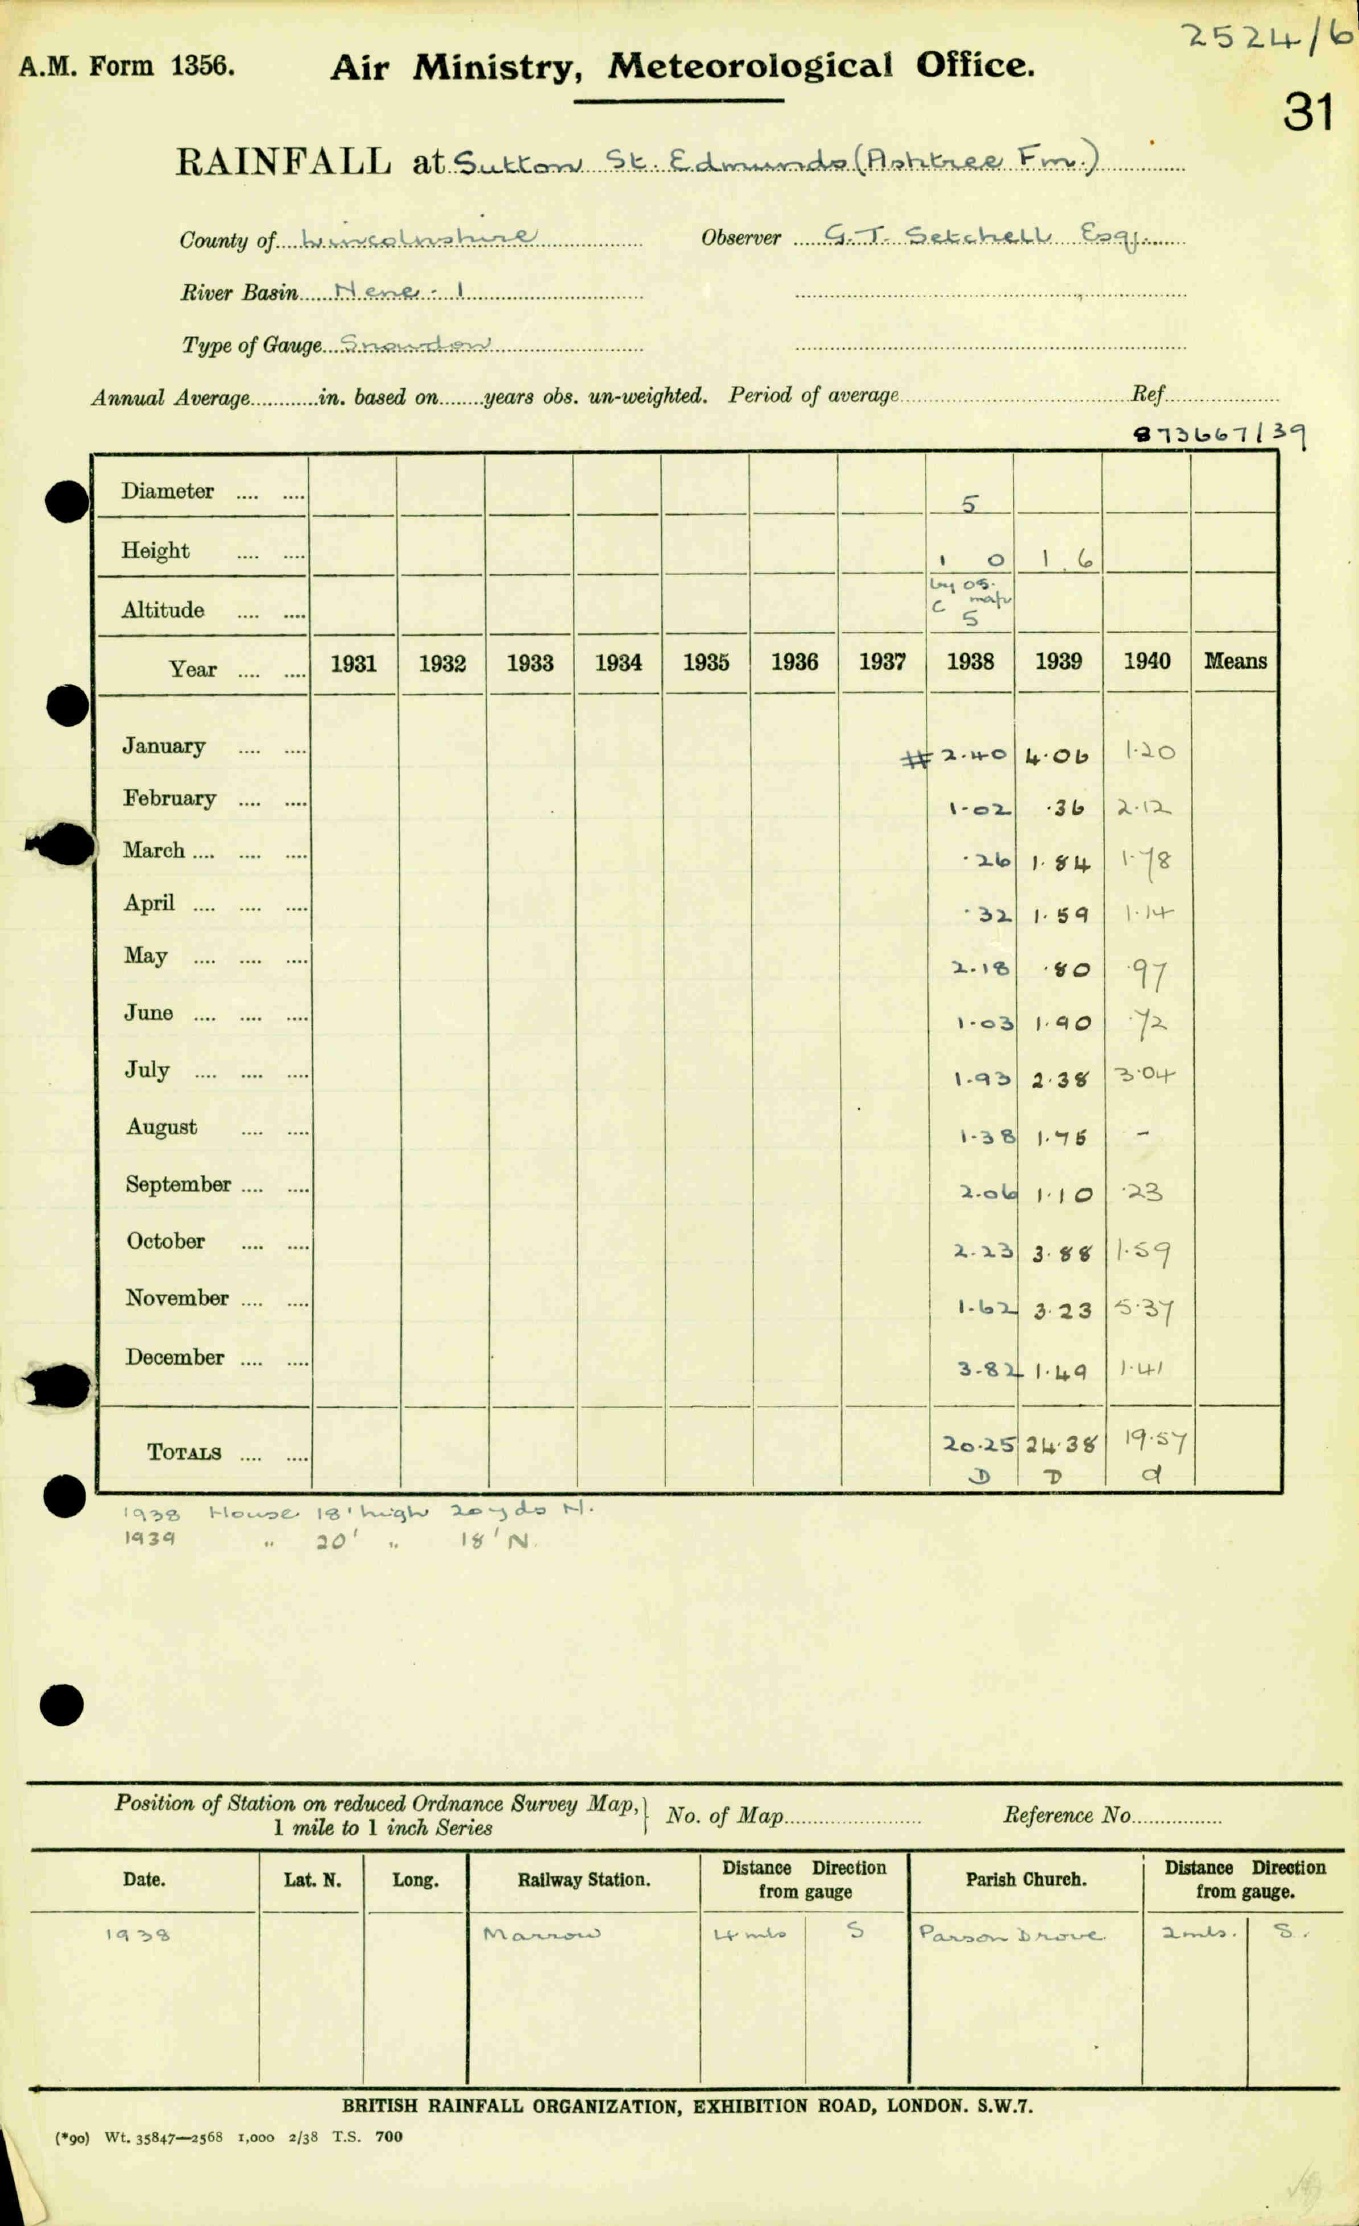 2524/6
A.M. Form 1356.
Air Ministry, Meteorological Office.
31
RAINFALL at Sutton St. Edmunds (Ashtree Fm.)
County of Lincolnshire Observer G.T. Setchell Esq.
River Basin Nene - 1
Type of Gauge Snowdon
Annual Average............in. based on........years obs. un-weighted. Period of average........ Ref........
873667/39
Diameter .... .... 5
Height .... .... 1 0 1.6
by OS.
map
Altitude .... .... c 5
Year .... .... 1931 1932 1933 1934 1935 1936 1937 1938 1939 1940 Means
January .... .... # 2.40 4.06 1.20
February .... .... 1.02 .36 2.12
March .... .... .... .26 1.84 1.78
April .... .... .... .32 1.59 1.14
May .... .... .... 2.18 .80 .97
June .... .... .... 1.03 1.90 .72
July .... .... .... 1.93 2.38 3.04
August .... .... 1.38 1.75 -
September .... .... 2.06 1.10 .23
October .... .... 2.23 3.88 1.59
November .... .... 1.62 3.23 5.37
December .... .... 3.82 1.49 1.41
TOTALS .... .... 20.25 24.38 19.57
D D d
1938 House 18' high 20 yds N.
1939 " 20' " 18' N.
Position of Station on reduced Ordnance Survey Map, 1 mile to 1 inch Series } No. of Map........ Reference No........
Date. Lat. N. Long. Railway Station. Distance Direction from gauge Parish Church. Distance Direction from gauge.
1938 Marrow 4 mls S Parson Drove 2 mls. S.
BRITISH RAINFALL ORGANIZATION, EXHIBITION ROAD, LONDON. S.W.7.
(*90) Wt. 35847—2568 1,000 2/38 T.S. 700